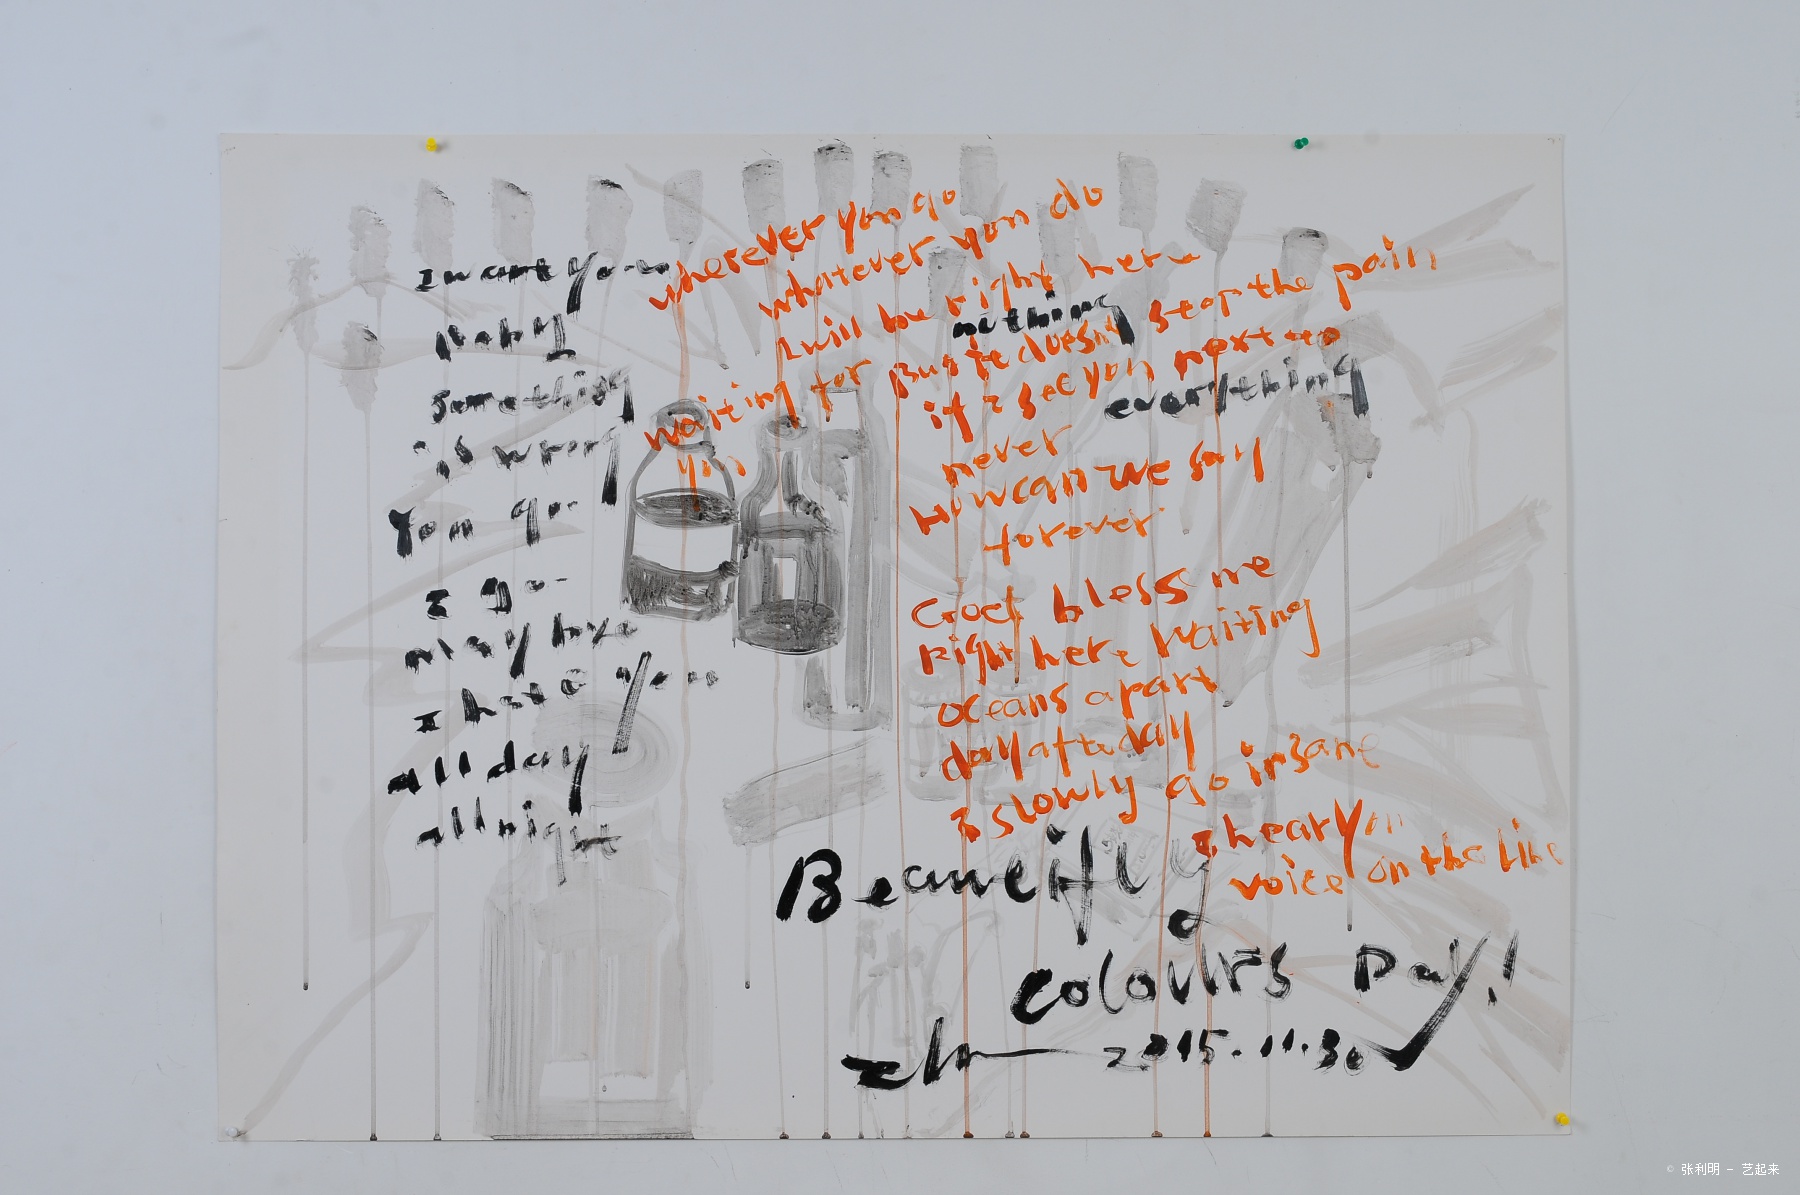 I want you
Baby
something
is wrong
You go
I go
may bye
I hate you
all day
all night
wherever you go
whatever you do
I will be right here
waiting for
you
nothing
But it doesnt stop the pain
if I see you next to
everything
never
How can we say
forever
God bless me
Right here waiting
oceans apart
day after day
I slowly go insane
I hear you
voice on the line
Beauteifly
colours Day!
zlm 2015.11.30
© 张利明 - 艺起来